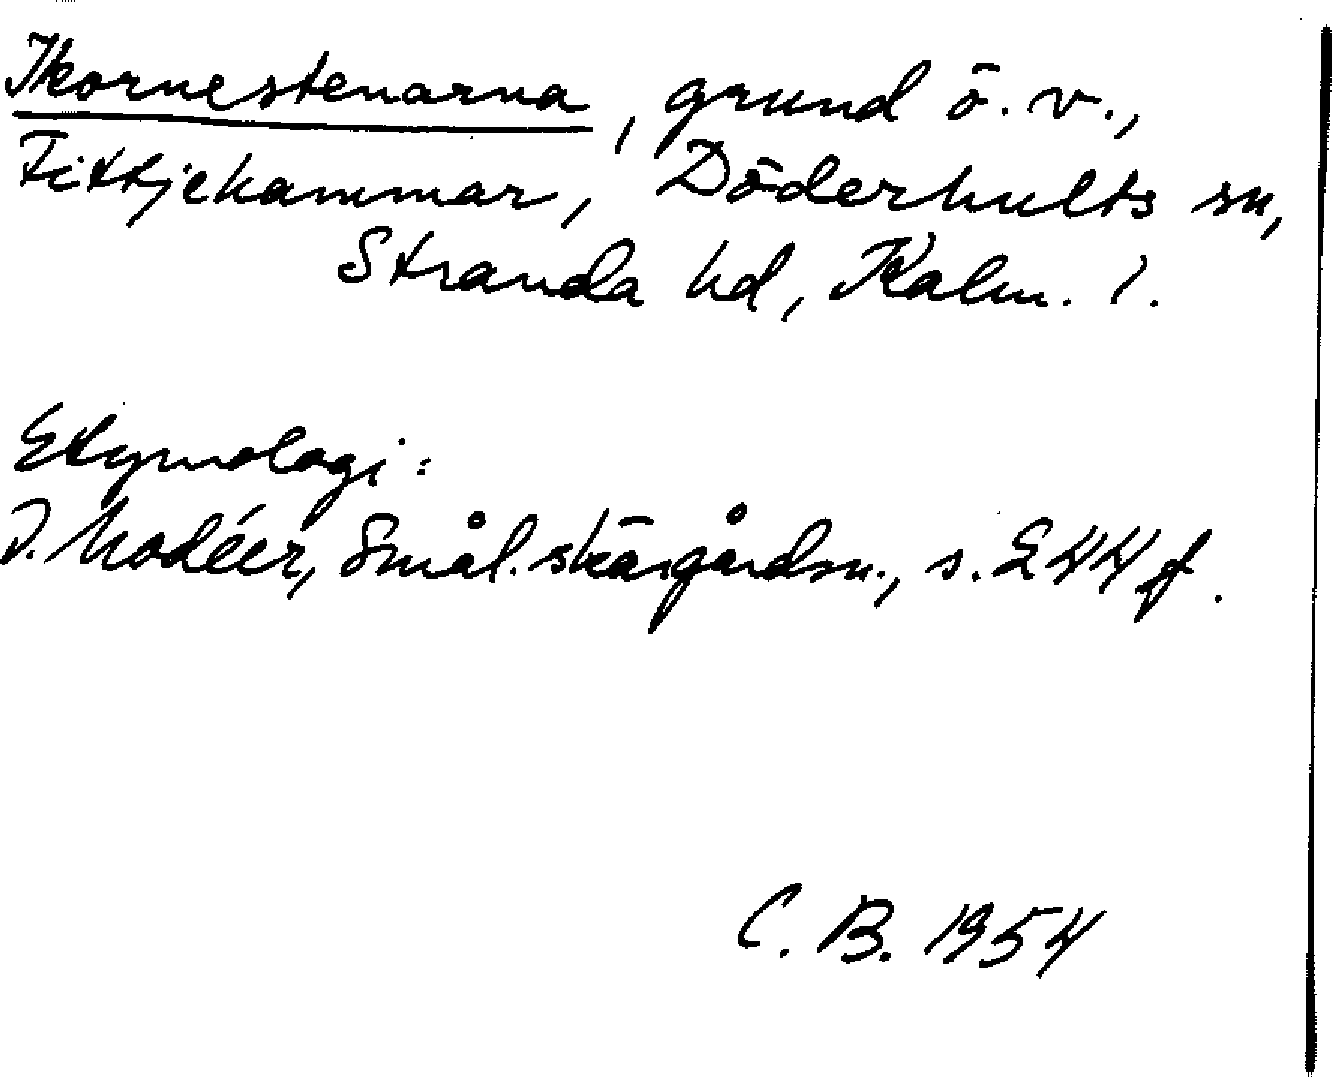 Ikornestenarna, grund ö. v.,
Fittjehammar, Döderhults sn,
Stranda hd, Kalm. l.
Etymologi:
I. Modéer, Smål. skärgårdsn., s. 244 f.
C. B. 1954